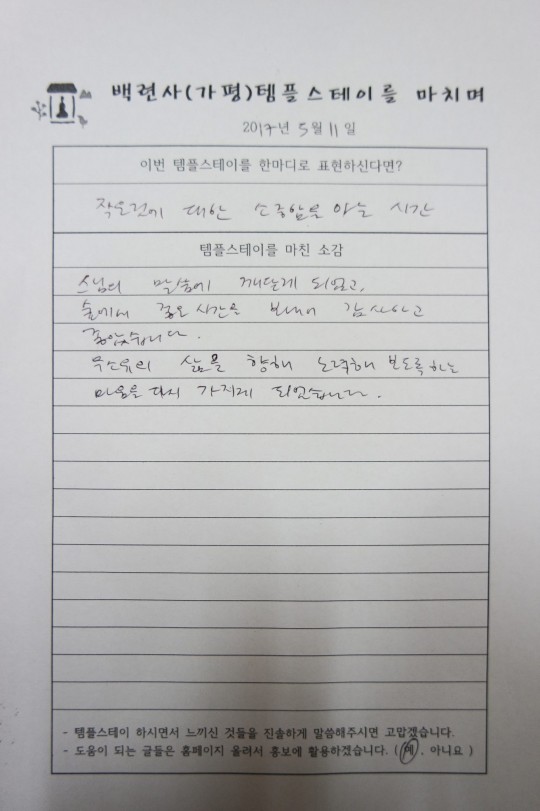 백련사(가평)템플스테이를 마치며
2017년 5월 11일
이번 템플스테이를 한마디로 표현하신다면?
작은것에 대한 소중함을 아는 시간
템플스테이를 마친 소감
스님의 말씀에 깨닫게 되었고,
숲에서 좋은 시간을 보내어 감사하고
좋았습니다.
무소유의 삶을 향해 노력해 보도록 하는
마음을 다시 가지게 되었습니다.
- 템플스테이 하시면서 느끼신 것들을 진솔하게 말씀해주시면 고맙겠습니다.
- 도움이 되는 글들은 홈페이지 올려서 홍보에 활용하겠습니다. ( 예 , 아니요 )